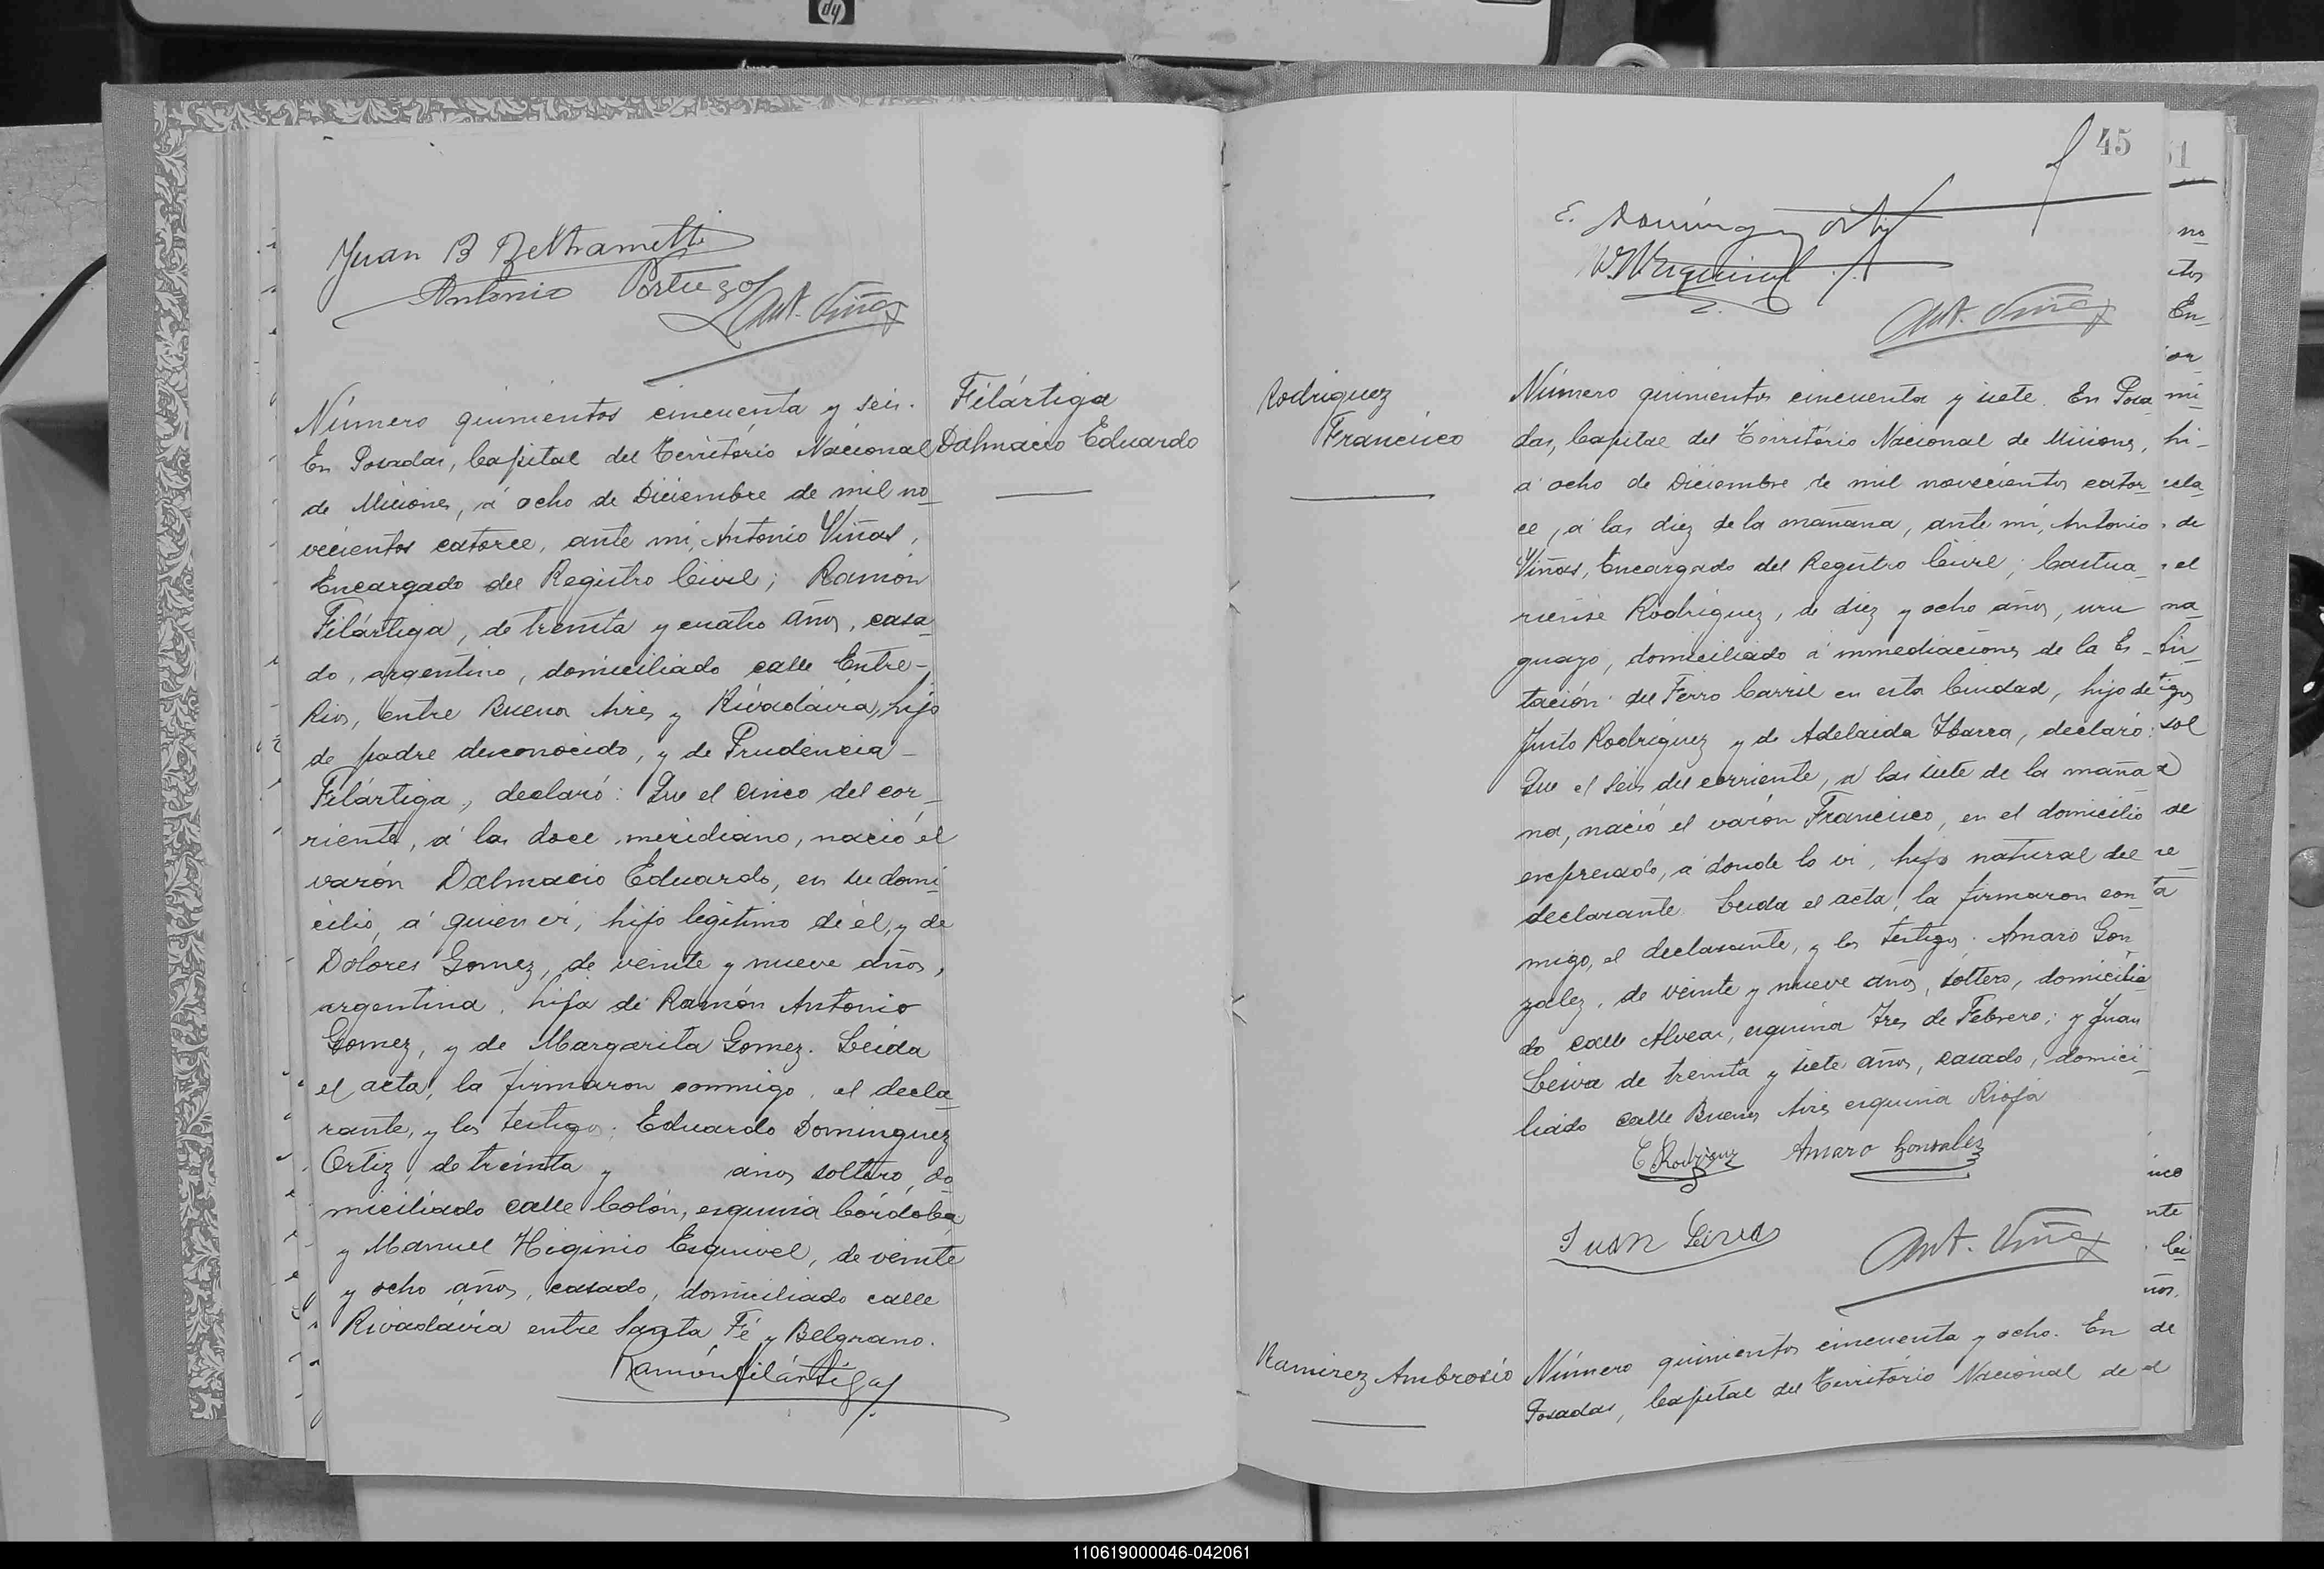 hp
Juan B Beltrametti
Antonio Portugal
Ant. Viñas
Filártiga
Dalmacio Eduardo
Número quinientos cincuenta y seis.
En Posadas, Capital del Territorio Nacional
de Misiones, á ocho de Diciembre de mil no_
vecientos catorce, ante mi, Antonio Viñas,
Encargado del Registro Civil; Ramón
Filártiga, de treinta y cuatro años, casa_
do, argentino, domiciliado calle Entre-
Rios, entre Buenos Aires y Rivadavia, hijo
de padre desconocido, y de Prudencia -
Filártiga, declaró: Que el cinco del cor_
riente, á las doce meridiano, nació el
varón Dalmacio Eduardo, en su domi_
cilio, á quien ví, hijo legítimo de él, y de
Dolores Gomez, de veinte y nueve años,
argentina, hija de Ramón Antonio
Gomez, y de Margarita Gomez. Leida
el acta, la firmaron conmigo, el decla_
rante, y los testigos; Eduardo Dominguez
Ortiz, de treinta y años soltero, do_
miciliado calle Colón, esquina Córdoba,
y Manuel Higinio Esquivel, de veinte
y ocho años, casado, domiciliado calle
Rivadavia entre Santa Fé y Belgrano.
Ramón Filártiga
45
E. Domínguez Ortiz
Ant. Viñas
Rodriguez
Francisco
Número quinientos cincuenta y siete. En Posa
das, Capital del Territorio Nacional de Misiones,
á ocho de Diciembre de mil novecientos cator_
ce, á las diez de la mañana, ante mi, Antonio
Viñas, Encargado del Registro Civil; Castua_
riense Rodriguez, de diez y ocho años, uru
guayo, domiciliado á inmediaciones de la Es_
tación del Ferro Carril en esta Ciudad, hijo de
Justo Rodriguez y de Adelaida Ibarra, declaró:
Que el seis del corriente, á las siete de la maña
na, nació el varón Francisco, en el domicilio
expresado, á donde lo ví, hijo natural del
declarante. Leida el acta, la firmaron con_
migo, el declarante, y los testigos; Amaro Gon
zalez, de veinte y nueve años, soltero, domicilia
do calle Alvear, esquina Tres de Febrero; y Juan
Leiva de treinta y siete años, casado, domici_
liado calle Buenos Aires esquina Rioja
C Rodriguez Amaro Gonzalez
Juan Leiva Ant. Viñas
Ramirez Ambrosio
Número quinientos cincuenta y ocho. En
Posadas, Capital del Territorio Nacional de
110619000046-042061